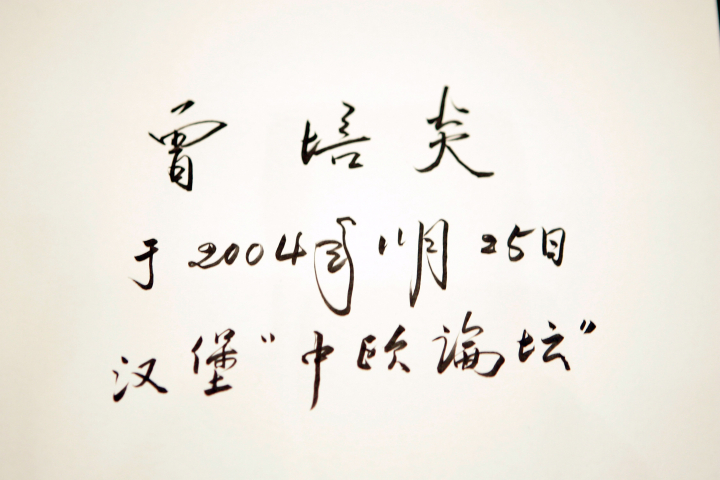 曾培炎
于2004年11月25日
汉堡“中欧论坛”